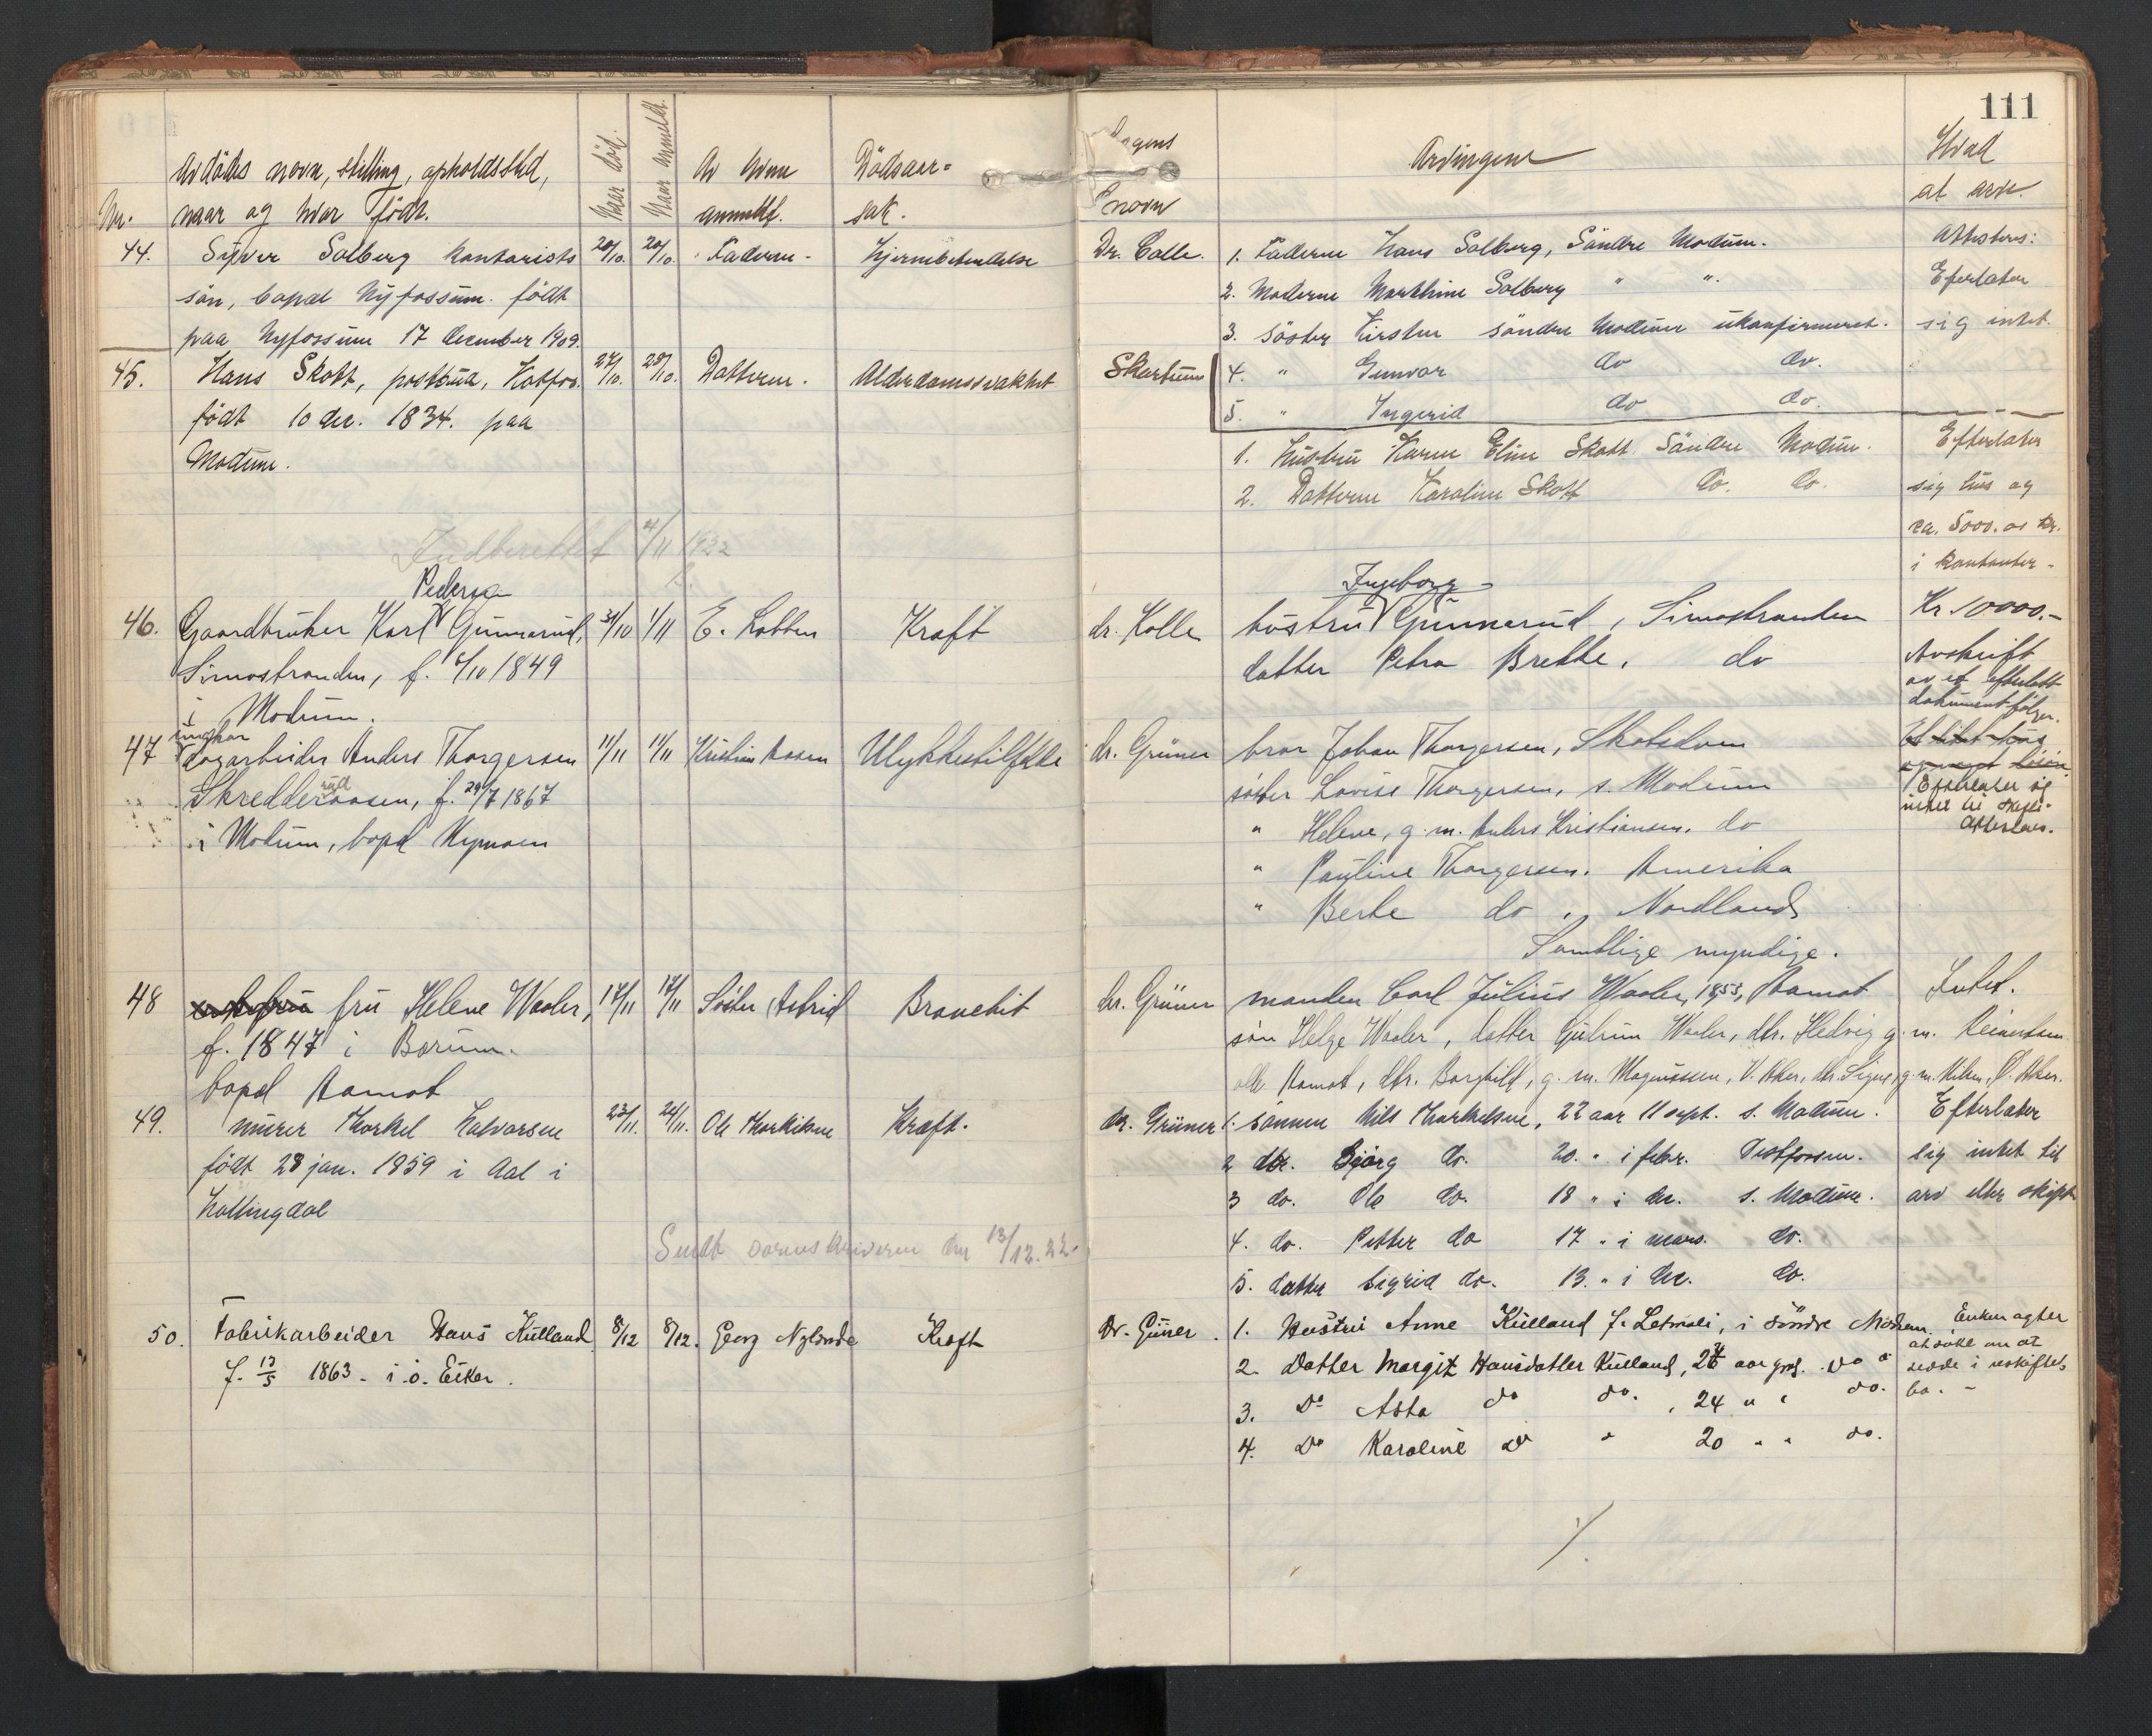 111
Nr.
Avdødes navn, stilling, opholdssted,
naar og hvor født.
Naar død.
Naar anmeldt.
Av hvem
anmeldt.
Dødsaar-
sak.
Lægens
navn
Arvingene
Hvad
at arve
44.
Syver Solberg kontorists
søn, bopæl Nyfossum. født
paa Nyfossum 17 december 1909.
20/10.
20/10.
Faderen.
Hjernebetændelse
Dr. Colle.
1. Faderen Hans Solberg, Søndre Modum.
2. Moderen Marthine Solberg " ".
3. søster Kirsten søndre Modum ukonfirmeret.
4. " Gunvor do do.
5. " Ingerid do do.
Attesteres:
Efterlater
sig intet.
45.
Hans Skott, Kotfos.
født 10 dec. 1834. paa
Modum.
27/10.
28/10.
Datteren.
Alderdomssvakhet
Skartum
1. Hustru Karen Eline Skott Søndre Modum.
2. Datteren Karoline Skott do. do.
Efterlater
sig hus og
ca. 5000.00 kr.
i kontanter.
Indberettet 4/11 1922
46.
Pedersen
Gaardbruker Karl Gunnerud,
Simostranden, f. 6/10 1849
i Modum.
31/10
1/11
E. Lobben
Kræft
dr. Kolle
Ingeborg
hustru Gunnerud, Simostranden
datter Petra Brekke, do
Kr 10000.-
Avskrift
av et efterlatt
dokument følger.
47
ungkar
dagarbeider Anders Thorgersen
Skredderaasen, f. 29/7 1867
rud
i Modum, bopd Nymoen
11/11
11/11
Kristian Aasen
Ulykkestilfælde
dr. Grüner
bror Johan Thorgersen, Skotsdam
søster Lovise Thorgersen, s. Modum
" Helene, g. m. Anders Kristiansen. do
" Pauline Thorgersen. Amerika
" Berte do, Nordland
Samtlige myndige.
Et litet hus
Efterlater sig
intet til skifte
Attesteres.
48
fru Helene Waaler,
f. 1847 i Bærum.
bopd Aamot
17/11
17/11
Søster Astrid
Bronchit
dr. Grüner
manden Carl Julius Waaler, 1853, Aamot
søn Helge Waaler, datter Gudrun Waaler, dtr. Hedvig g. m. Reinertsen
alle Aamot, dtr. Borghild, g. m. Magnussen, V. Aker, dtr. Signe, g. m. , V. Aker.
Intet.
49.
murer Thorkel Halvorsen
født 28 jan. 1859 i Aal i
Hallingdal
23/11.
24/11.
Ole Thorkelsen
Kræft.
dr. Grüner
1. sønnen Nils Thorkelsen, 22 aar 11 sept. s. Modum.
2 dtr. Bjørg do. 20. " i febr. Vestfossen.
3 do. Ole do. 18 " i dec. s. Modum.
4. do. Petter do 17 " i mars. do.
5. datter Sigrid do. 13. " i dec. do.
Efterlater
sig intet til
arv eller skifte
Sendt sorenskriveren den 13/12.22.
50.
Fabrikarbeider Hans Külland
f. 13/5 1863. i ø. Eiker.
8/12
8/12.
Georg Nylænde
Kræft
Dr. Güner.
1. Hustru Anne Külland f. Letmoli, i søndre Modum.
2. Datter Margit Hansdatter Külland, 26 aar gml. do
3. Do Asta do do., 24 " " do.
4. Do Karoline do " 20 " " do.
Enken agter
at søke om at
sidde i uskiftet
bo. -